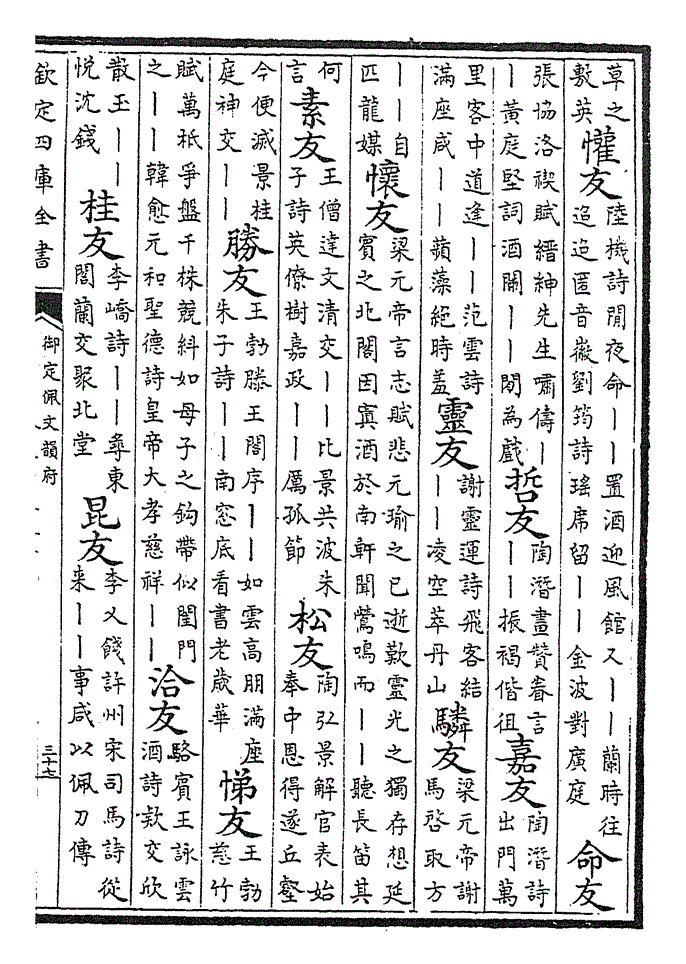 草之敷英懽友陸機詩閒夜命｜｜置酒迎風館又｜｜蘭時往迢迢匿音徽劉筠詩瑤席留｜｜金波對廣庭命友
張協洛禊賦縉紳先生嘯儔｜｜黃庭堅詞酒闌｜｜閒為戲哲友陶潛畫贊眷言｜｜振褐偕徂嘉友陶潛詩出門萬
里客中道逢｜｜范雲詩滿座咸｜｜蘋藻絕時羞靈友謝靈運詩飛客結｜｜凌空萃丹山麟友梁元帝謝馬啓取方
｜｜自匹龍媒懷友梁元帝言志賦悲元瑜之已逝歎靈光之獨存想延賓之北閣因寘酒於南軒聞鶯鳴而｜｜聽長笛其
何言素友王僧達文清交｜｜比景共波朱子詩英僚樹嘉政｜｜厲孤節松友陶弘景解官表始奉中恩得遂丘壑
今便滅景桂庭神交｜｜勝友王勃滕王閣序｜｜如雲高朋滿座朱子詩｜｜南窓底看書老歲華悌友王勃慈竹
賦萬柢爭盤千株競糾如母子之鈎帶似閨門之｜｜韓愈元和聖德詩皇帝大孝慈祥｜｜洽友駱賓王詠雲酒詩欵交欣
散玉｜｜悅沈錢桂友李嶠詩｜｜尋東閣蘭交聚北堂昆友李乂餞許州宋司馬詩從来｜｜事咸以佩刀傳
欽定四庫全書
御定佩文韻府
三十七